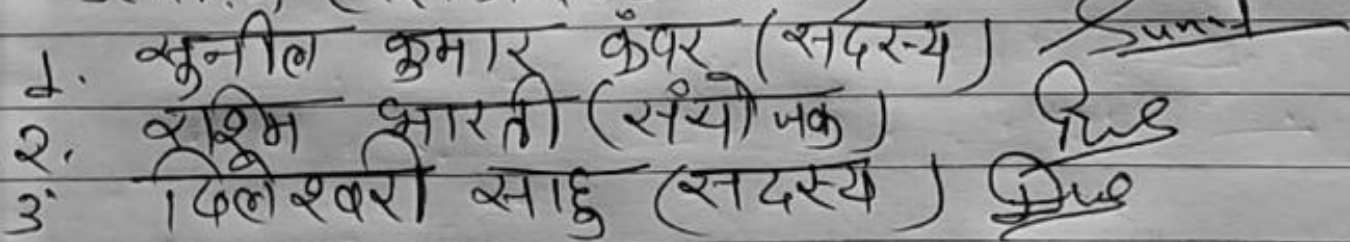 1. सुनील कुमार कँवर (सदस्य) Sunil
2. रश्मि भारती (संयोजक)
3. दिलेश्वरी साहु (सदस्य)